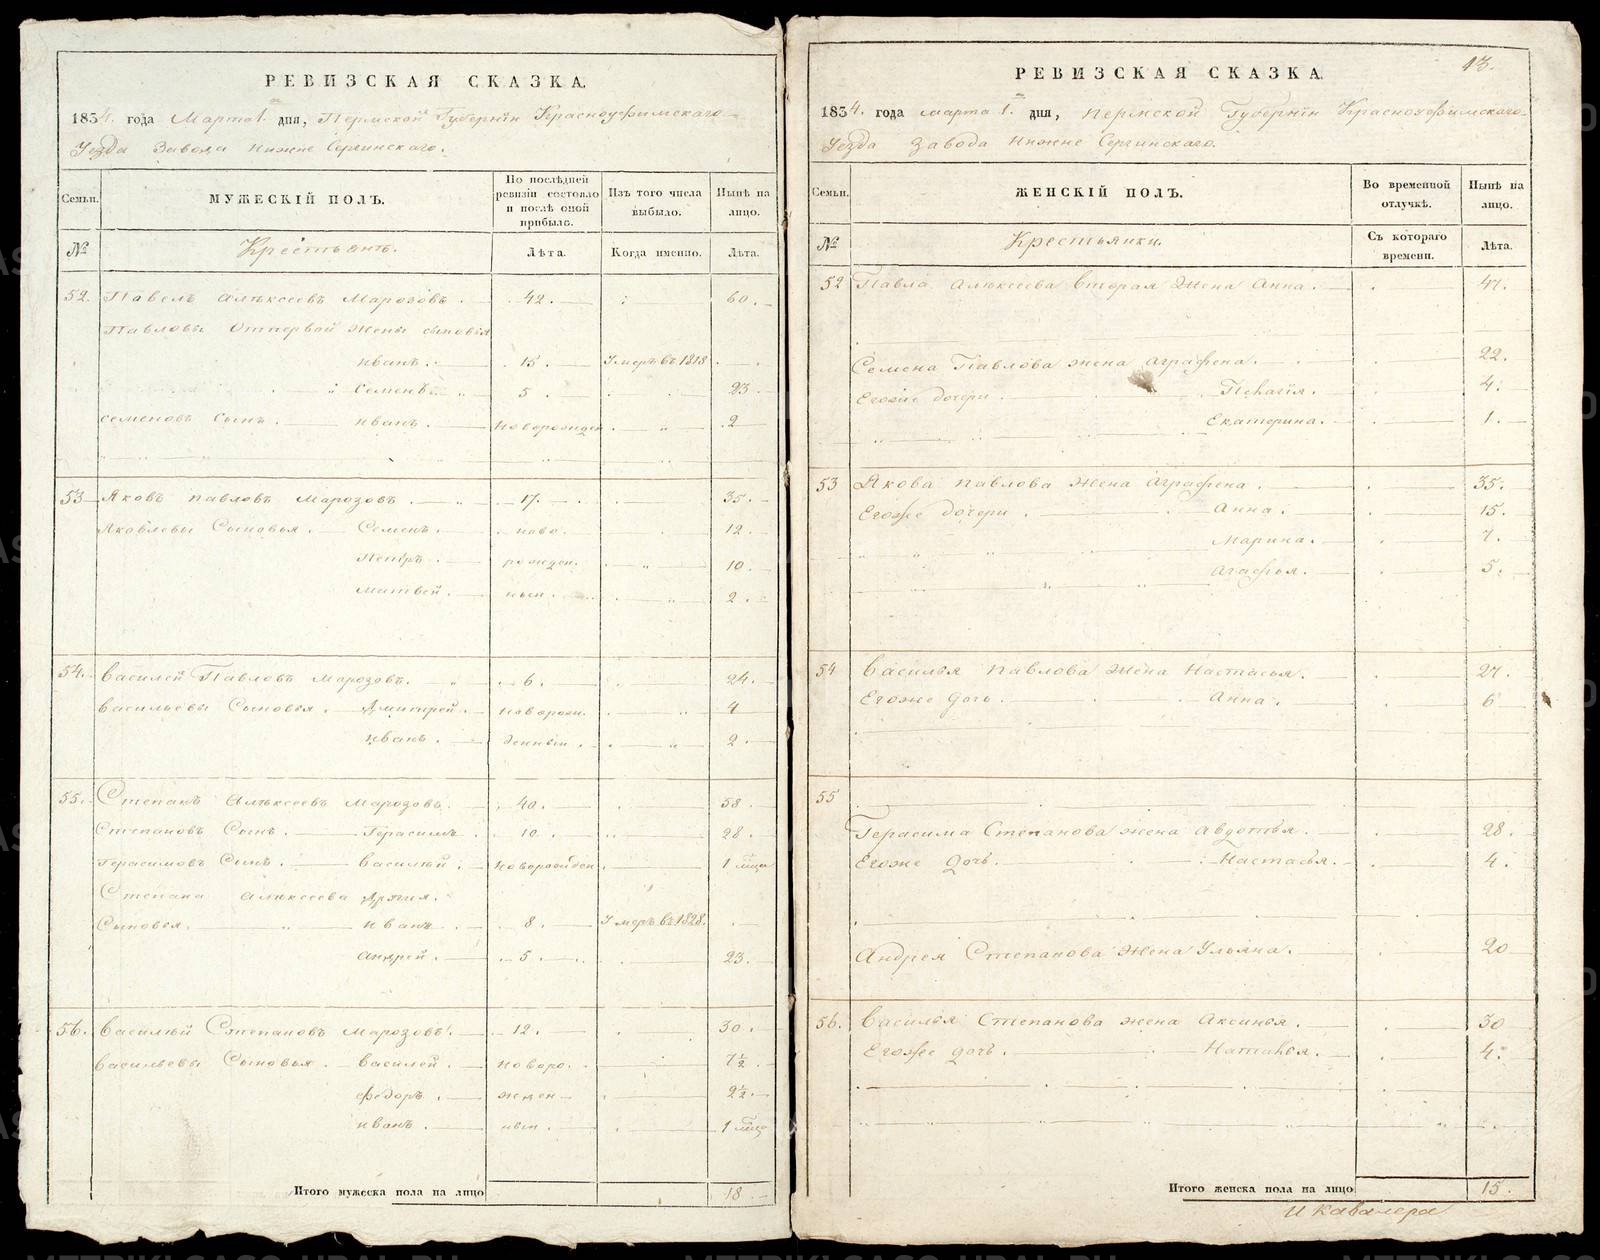 РЕВИЗСКАЯ СКАЗКА.
1834. года Марта 1. дня, Пермской Губернiи Красноуфимскаго
Уезда Завода Нижне Сергинскаго.
Семьи. МУЖЕСКIЙ ПОЛЪ. По последней ревизiи состояло и послѣ оной прибыло. Изъ того числа выбыло. Нынѣ на лицо.
№ Крестьянъ. Лѣта. Когда именно. Лѣта.
52. Павелъ Алѣксеевъ Марозовъ. 42. 60.
Павловы Отпервой жены сыновья
иванъ. 15. Умеръ въ 1818.
Семенъ. 5. 23
семеновъ сынъ. иванъ. новорожден. 2
53 Яковъ павловъ Марозовъ. 17. 35.
Яковлевы Сыновья. Семенъ. ново 12.
Петръ. рожден. 10.
матвей. ныи. 2.
54. Василей Павловъ Марозовъ. 6. 24.
васильевы Сыновья. Дмитрей. новорож. 4
иванъ. денныи. 2.
55. Степанъ Алѣксеевъ Марозовъ. 40. 58.
Степановъ Сынъ. Герасимъ. 10. 28.
Герасимовъ Сынъ. василѣй. новорожден. 1 мца
Степана алѣксеева другия.
Сыновья. иванъ. 8. Умеръ въ 1828.
андрей. 5. 23.
56. василѣй Степановъ Марозовъ. 12. 30.
васильевы Сыновья. василей. новоро. 7½
федоръ. жден 2½.
иванъ. ныи. 1 мца
Итого мужеска пола на лицо 18.
13.
РЕВИЗСКАЯ СКАЗКА.
1834. года марта 1. дня, Пермской Губернiи Красноуфимскаго
Уезда Завода Нижне Сергинскаго.
Семьи. ЖЕНСКIЙ ПОЛЪ. Во временной отлучкѣ. Нынѣ на лицо.
№ Крестьянки. Съ котораго времени. Лѣта.
52 Павла алѣксеева вторая жена анна. 47.
Семена Павлова жена аграфена. 22.
Егоже дочери Пелагiя. 4.
Екатерина. 1.
53 Якова павлова жена аграфена. 35.
Егоже дочери. анна. 15.
Марина. 7.
агафья. 5.
54 Василья павлова жена Настасья. 27.
Егоже дочь. анна. 6
55
Герасима Степанова жена авдотья. 28.
Егоже дочь. Настасья. 4.
Андрея Степанова жена Ульяна. 20
56. Василья Степанова жена Аксинья. 30
Егоже дочь. Наталья. 4.
Итого женска пола на лицо 15.
и кавалера